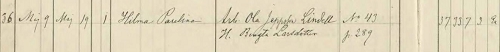 36 Maj 9 Maj 19 1 Hilma Paulina Arb. Ola Jeppsson Lindell No 43 37 33 7 3
H. Bengta Larsdotter p. 289